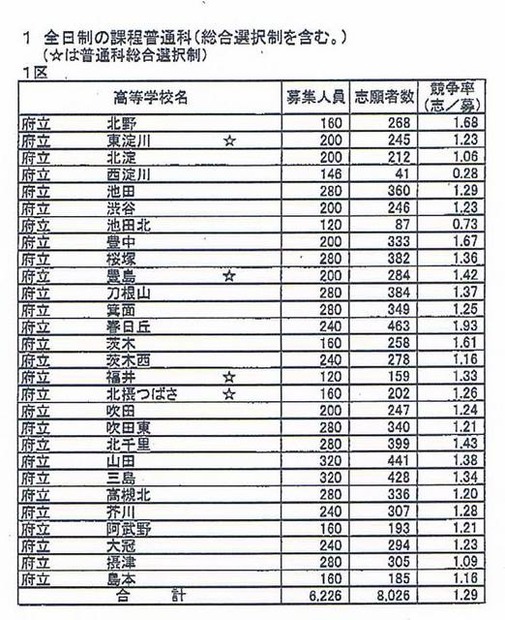 1 全日制の課程普通科(総合選択制を含む。)
(☆は普通科総合選択制)
1区
高等学校名 募集人員 志願者数 競争率(志/募)
府立 北野 160 268 1.68
府立 東淀川 ☆ 200 245 1.23
府立 北淀 200 212 1.06
府立 西淀川 146 41 0.28
府立 池田 280 360 1.29
府立 渋谷 200 246 1.23
府立 池田北 120 87 0.73
府立 豊中 200 333 1.67
府立 桜塚 280 382 1.36
府立 豊島 ☆ 200 284 1.42
府立 刀根山 280 384 1.37
府立 箕面 280 349 1.25
府立 春日丘 240 463 1.93
府立 茨木 160 258 1.61
府立 茨木西 240 278 1.16
府立 福井 ☆ 120 159 1.33
府立 北摂つばさ ☆ 160 202 1.26
府立 吹田 200 247 1.24
府立 吹田東 280 340 1.21
府立 北千里 280 399 1.43
府立 山田 320 441 1.38
府立 三島 320 428 1.34
府立 高槻北 280 336 1.20
府立 芥川 240 307 1.28
府立 阿武野 160 193 1.21
府立 大冠 240 294 1.23
府立 摂津 280 305 1.09
府立 島本 160 185 1.16
合計 6,226 8,026 1.29